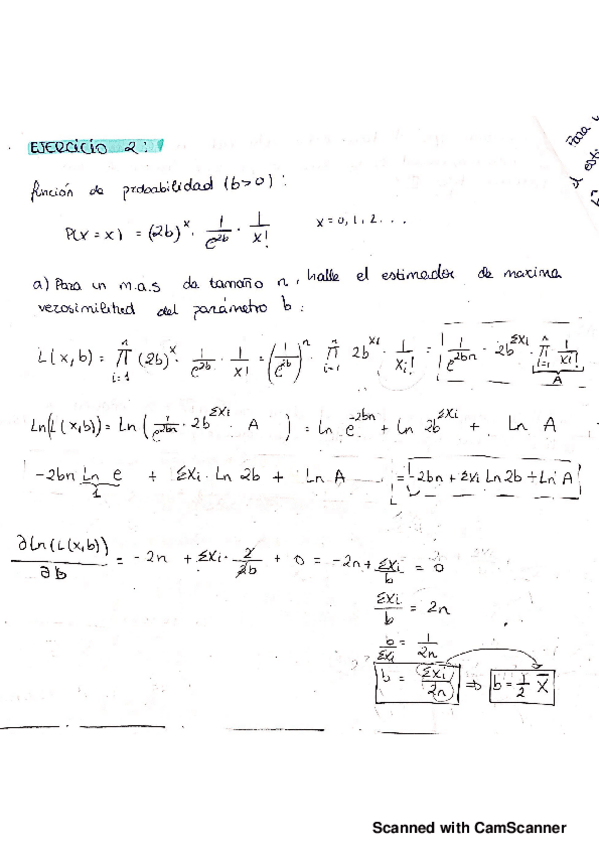 EJERCICIO 2:
función de probabilidad (b>0):
P(X = x) = (2b)^x · 1/e^{2b} · 1/x! x = 0, 1, 2 . . .
a) Para un m.a.s de tamaño n, halle el estimador de maxima
verosimilitud del parámetro b:
L(x, b) = ∏_{i=1}^{n} (2b)^x · 1/e^{2b} · 1/x! = (1/e^{2b})^n · ∏_{i=1}^{n} 2b^{xi} · 1/xi! = 1/e^{2bn} · 2b^{Σxi} · ∏_{i=1}^{n} 1/xi!
A
Ln(L(x,b)) = Ln (1/e^{2bn} · 2b^{Σxi} · A) = Ln e^{-2bn} + Ln 2b^{Σxi} + Ln A
-2bn Ln e + Σxi · Ln 2b + Ln A = -2bn + Σxi Ln 2b + Ln A
1
∂Ln(L(x,b))/∂b = -2n + Σxi · 2/2b + 0 = -2n + Σxi/b = 0
Σxi/b = 2n
b/Σxi = 1/2n
b = Σxi/2n ⇒ b = 1/2 X̄
Para
el
Scanned with CamScanner